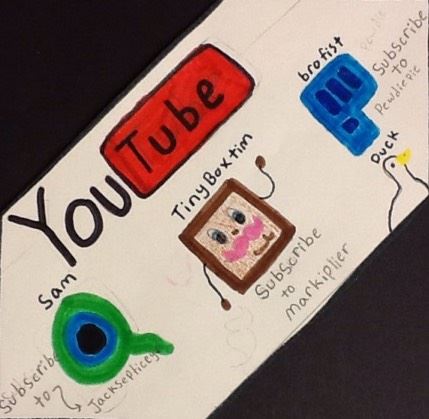 YouTube
brofist
Pewdie
Subscribe
to
Pewdiepie
Duck
TinyBoxtim
Subscribe
to
markiplier
Sam
Subscribe
to
Jacksepticeye